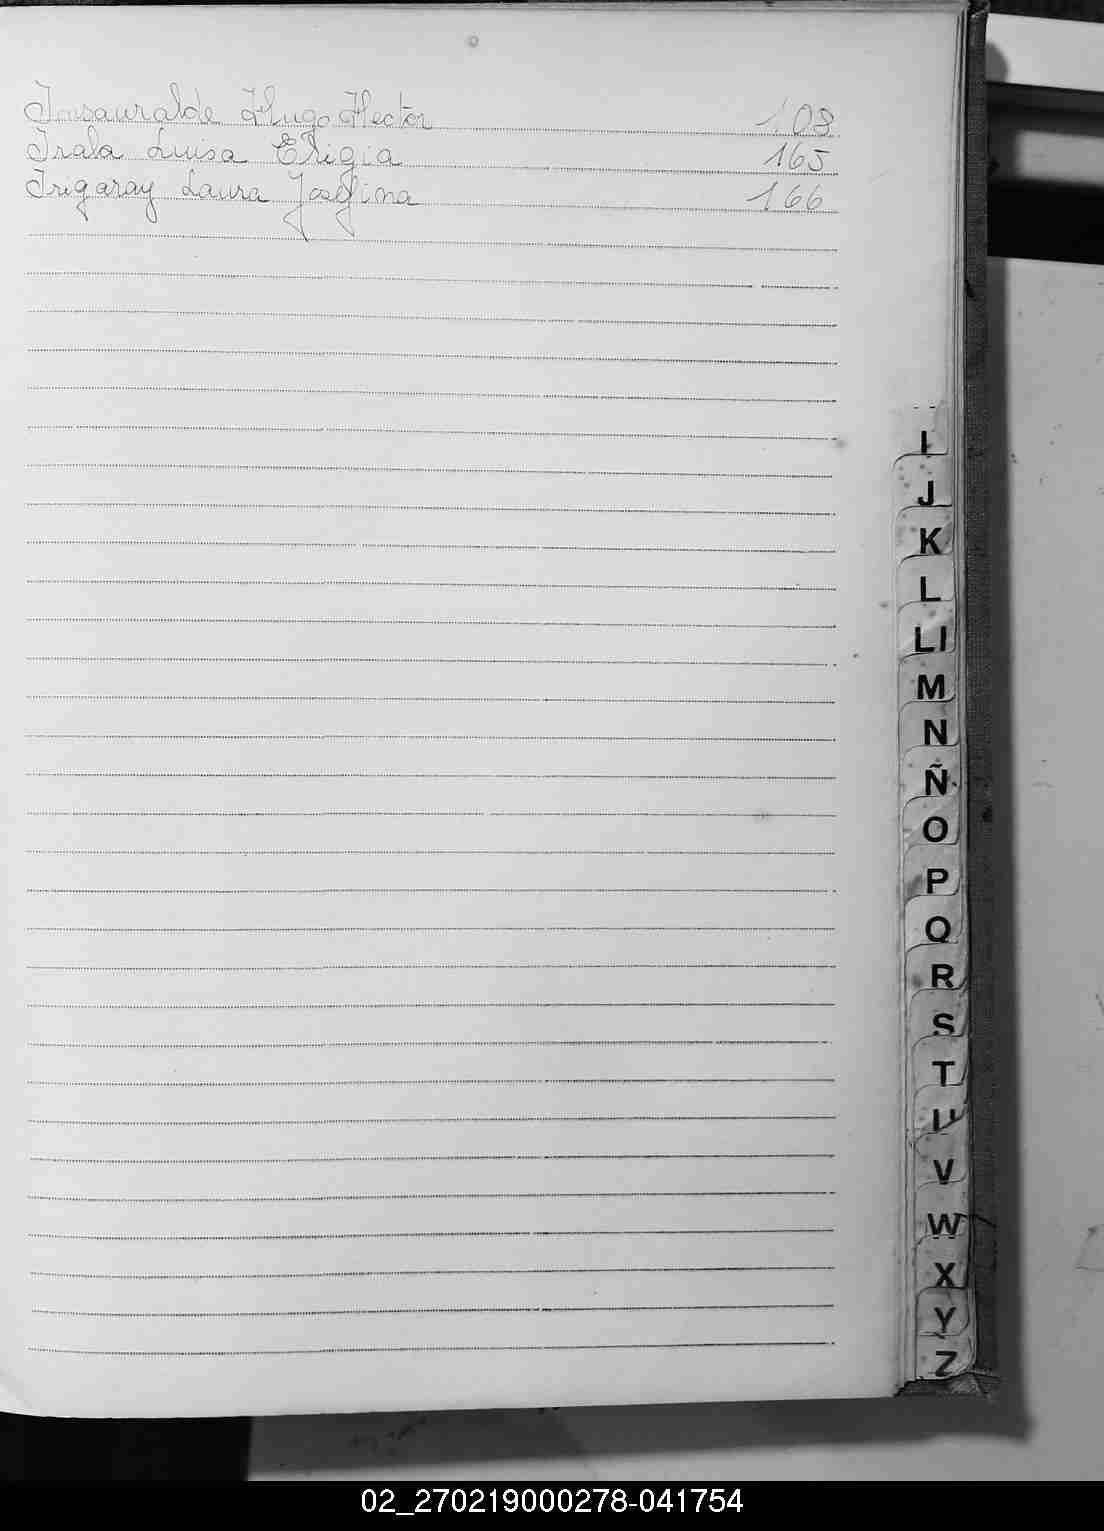 Insauralde Hugo Hector 108
Irala Luisa Eligia 165
Irigaray Laura Josefina 166
I
J
K
L
Ll
M
N
Ñ
O
P
Q
R
S
T
U
V
W
X
Y
Z
02_270219000278-041754